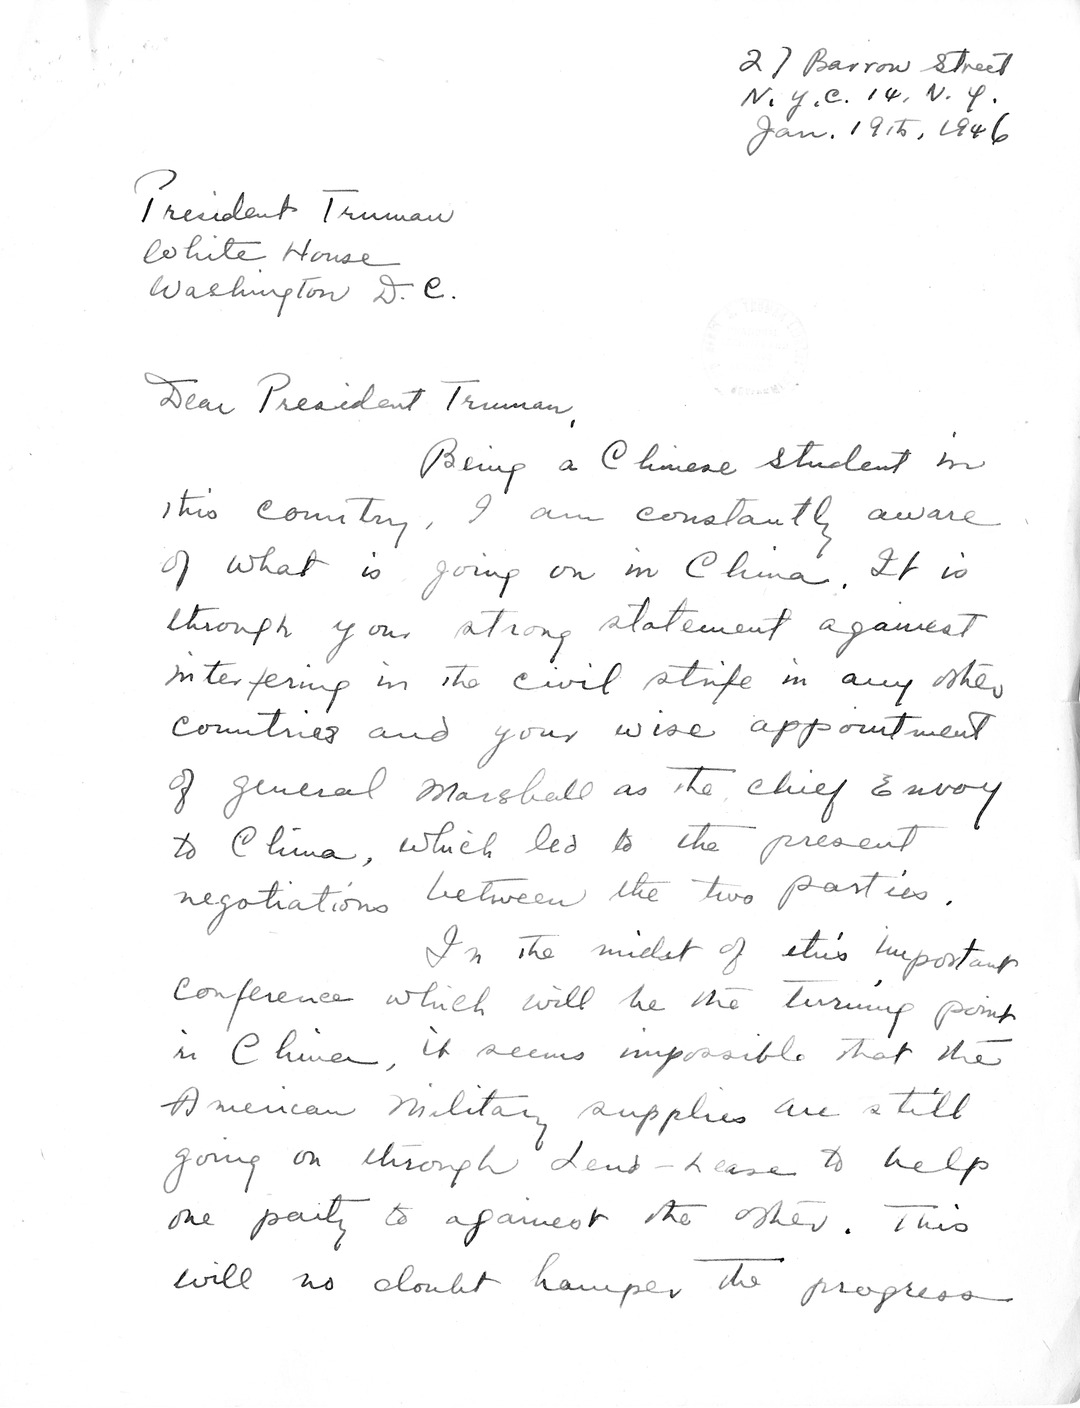 27 Barrow Street
N.Y.C. 14, N.Y.
Jan. 19th, 1946
President Truman
White House
Washington D.C.
Dear President Truman,
Being a Chinese student in
this country, I am constantly aware
of what is going on in China. It is
through your strong statement against
interfering in the civil strife in any other
countries and your wise appointment
of general Marshall as the chief Envoy
to China, which led to the present
negotiations between the two parties.
In the midst of this important
conference which will be the turning point
in China, it seems impossible that the
American Military supplies are still
going on through Lend-Lease to help
one party to against the other. This
will no doubt hamper the progress